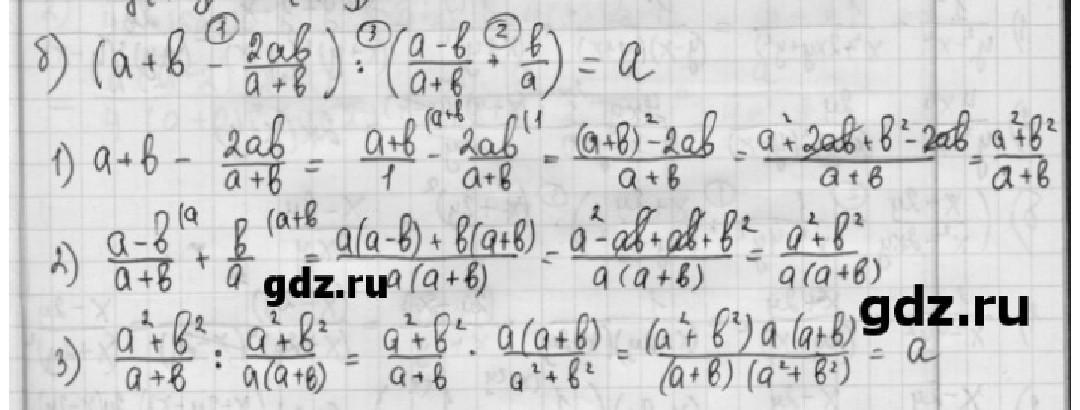 б) (a+b - 2ab/(a+b)) : ((a-b)/(a+b) + b/a) = a
1) a+b - 2ab/(a+b) = (a+b)/1 - 2ab/(a+b) = ((a+b)²-2ab)/(a+b) = (a²+2ab+b²-2ab)/(a+b) = (a²+b²)/(a+b)
2) (a-b)/(a+b) + b/a = (a(a-b)+b(a+b))/(a(a+b)) = (a²-ab+ab+b²)/(a(a+b)) = (a²+b²)/(a(a+b))
gdz.ru
gdz.ru
3) (a²+b²)/(a+b) : (a²+b²)/(a(a+b)) = (a²+b²)/(a+b) · a(a+b)/(a²+b²) = (a²+b²)a(a+b)/((a+b)(a²+b²)) = a